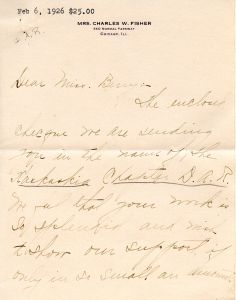 Feb 6, 1926 $25.00
D.A.R.
MRS. CHARLES W. FISHER
CHICAGO, ILL.
Dear Miss Berry:-
The enclosed
cheque we are sending
you in the name of the
Kaskaskia Chapter D.A.R.
We feel that your work is
so splendid and wish
to show our support if
only in so small an amount.